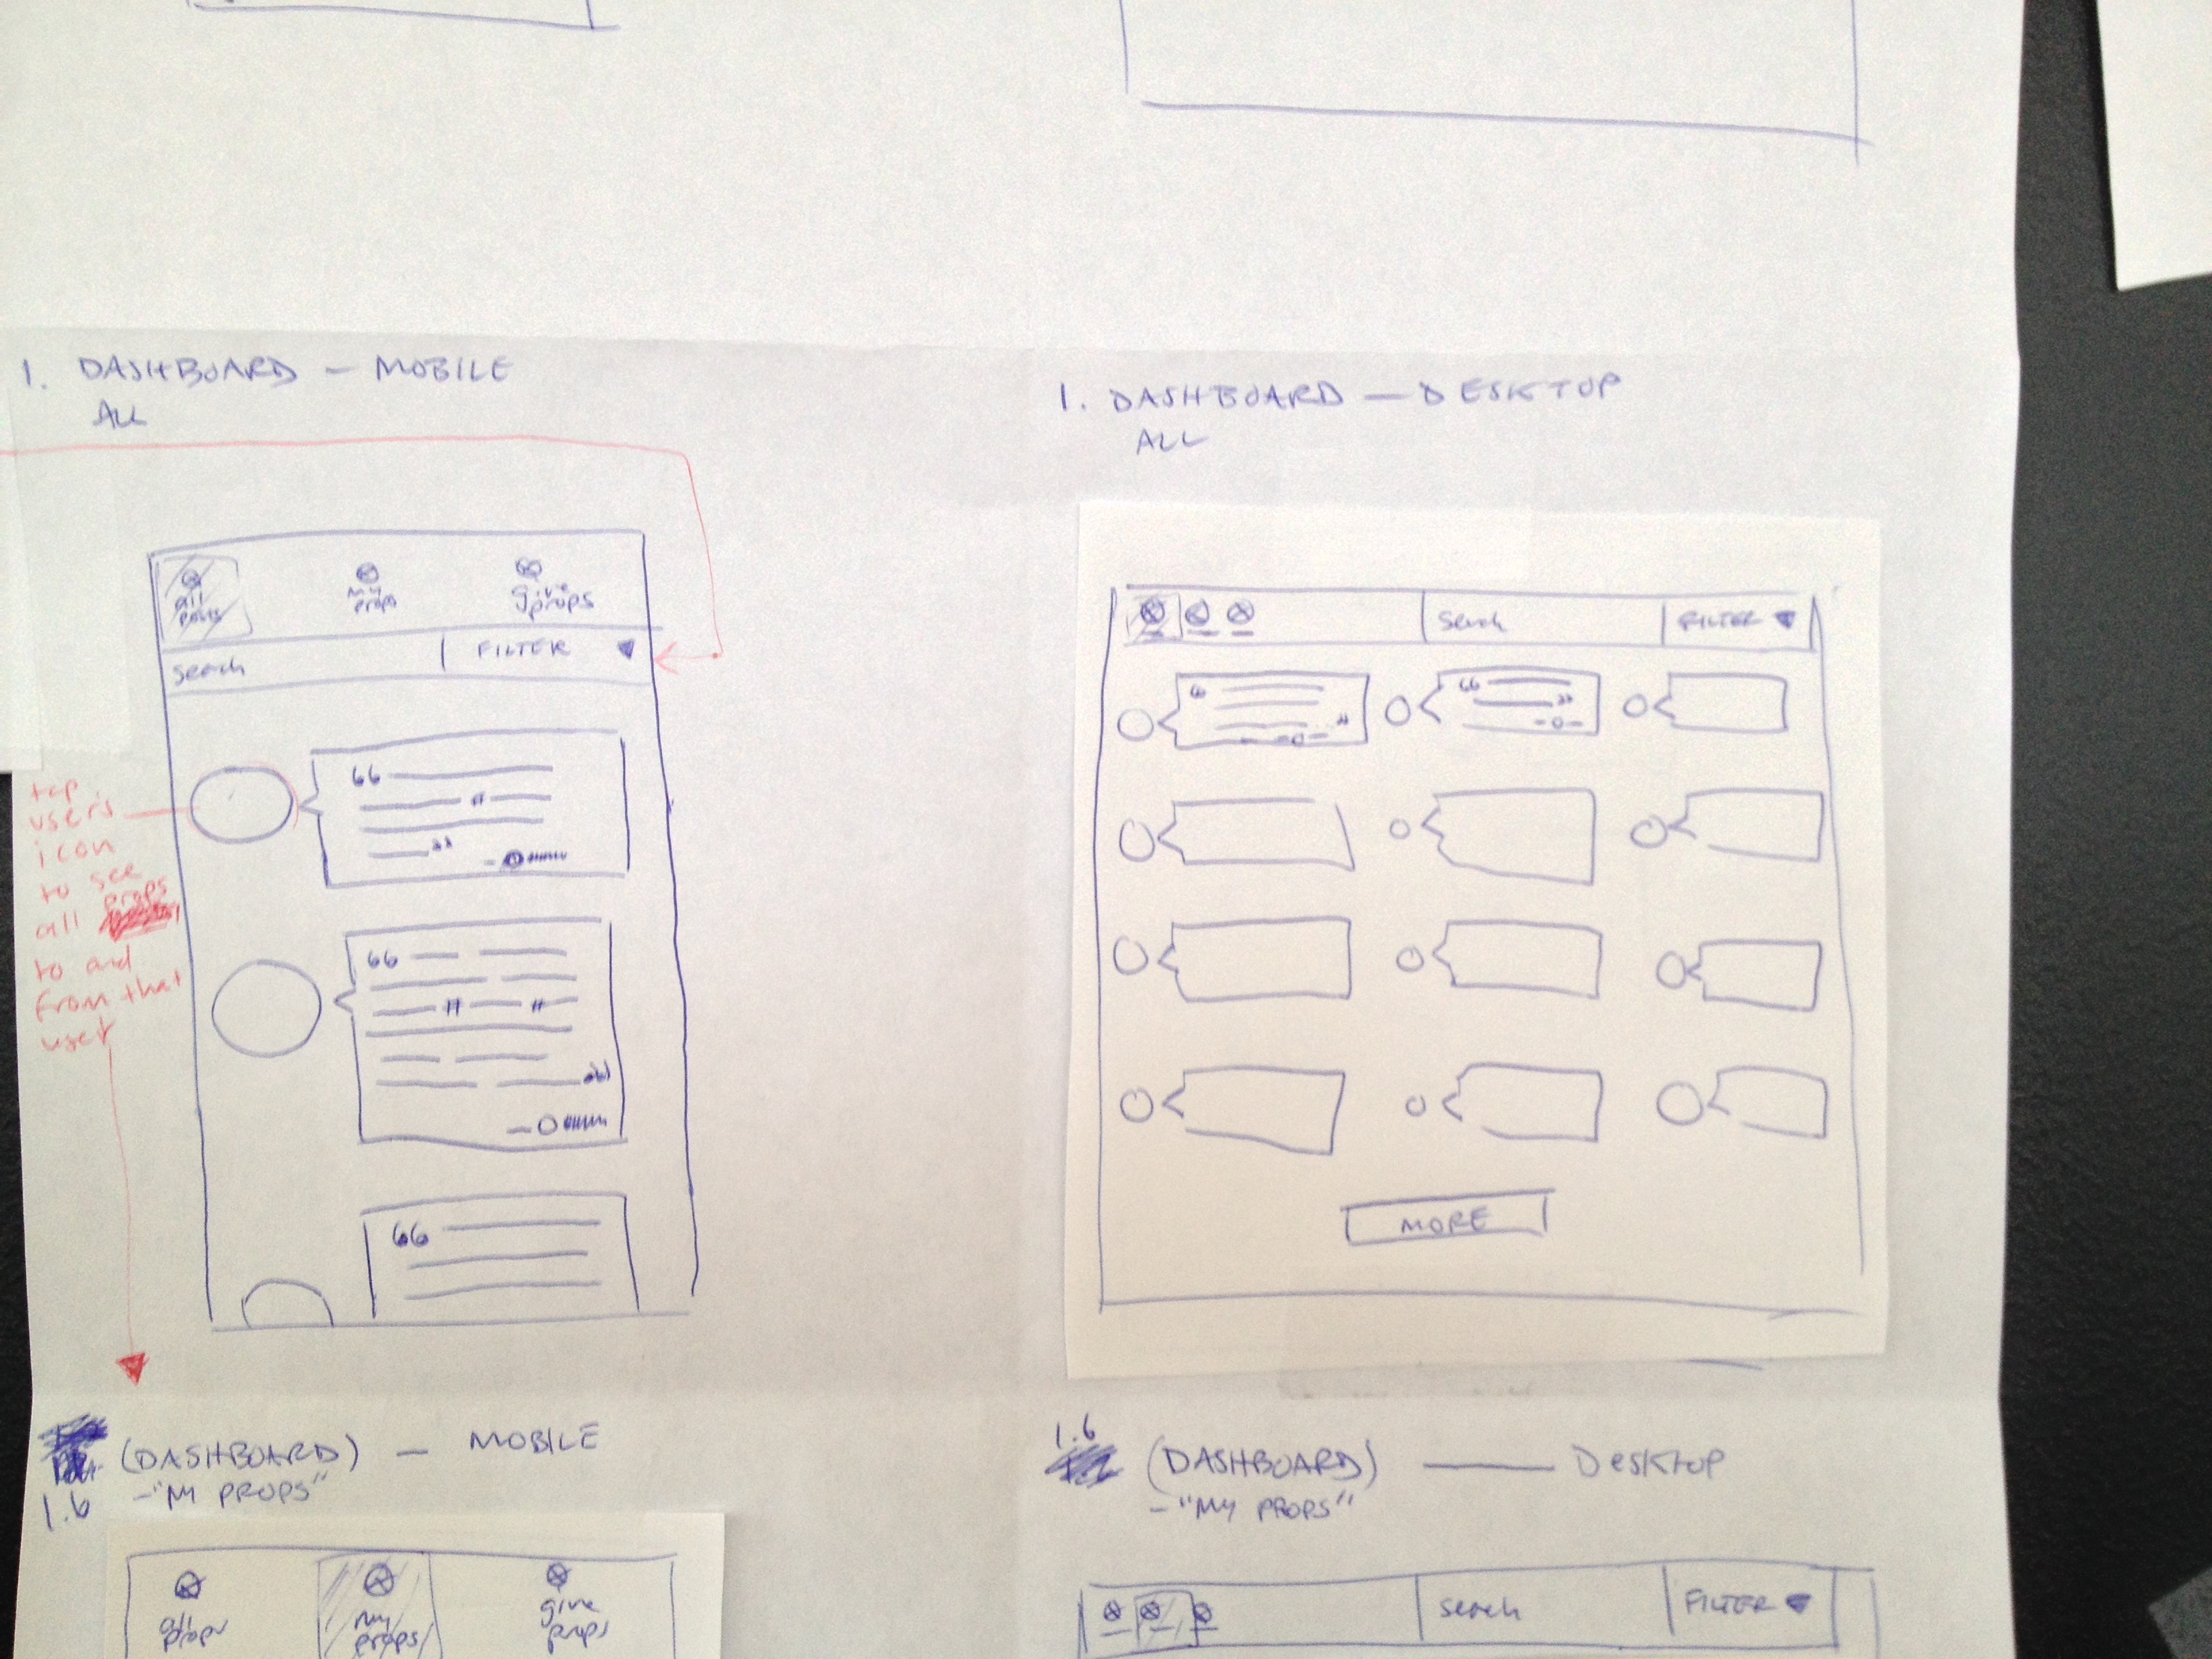 1. DASHBOARD — MOBILE
ALL
all props
my props
give props
search
FILTER
tap
user's
icon
to see
all props
to and
from that
user
1. DASHBOARD — DESKTOP
ALL
search
FILTER
MORE
1.6 (DASHBOARD) — MOBILE
- "MY PROPS"
all props
my props
give props
1.6 (DASHBOARD) — DESKTOP
- "MY PROPS"
search
FILTER